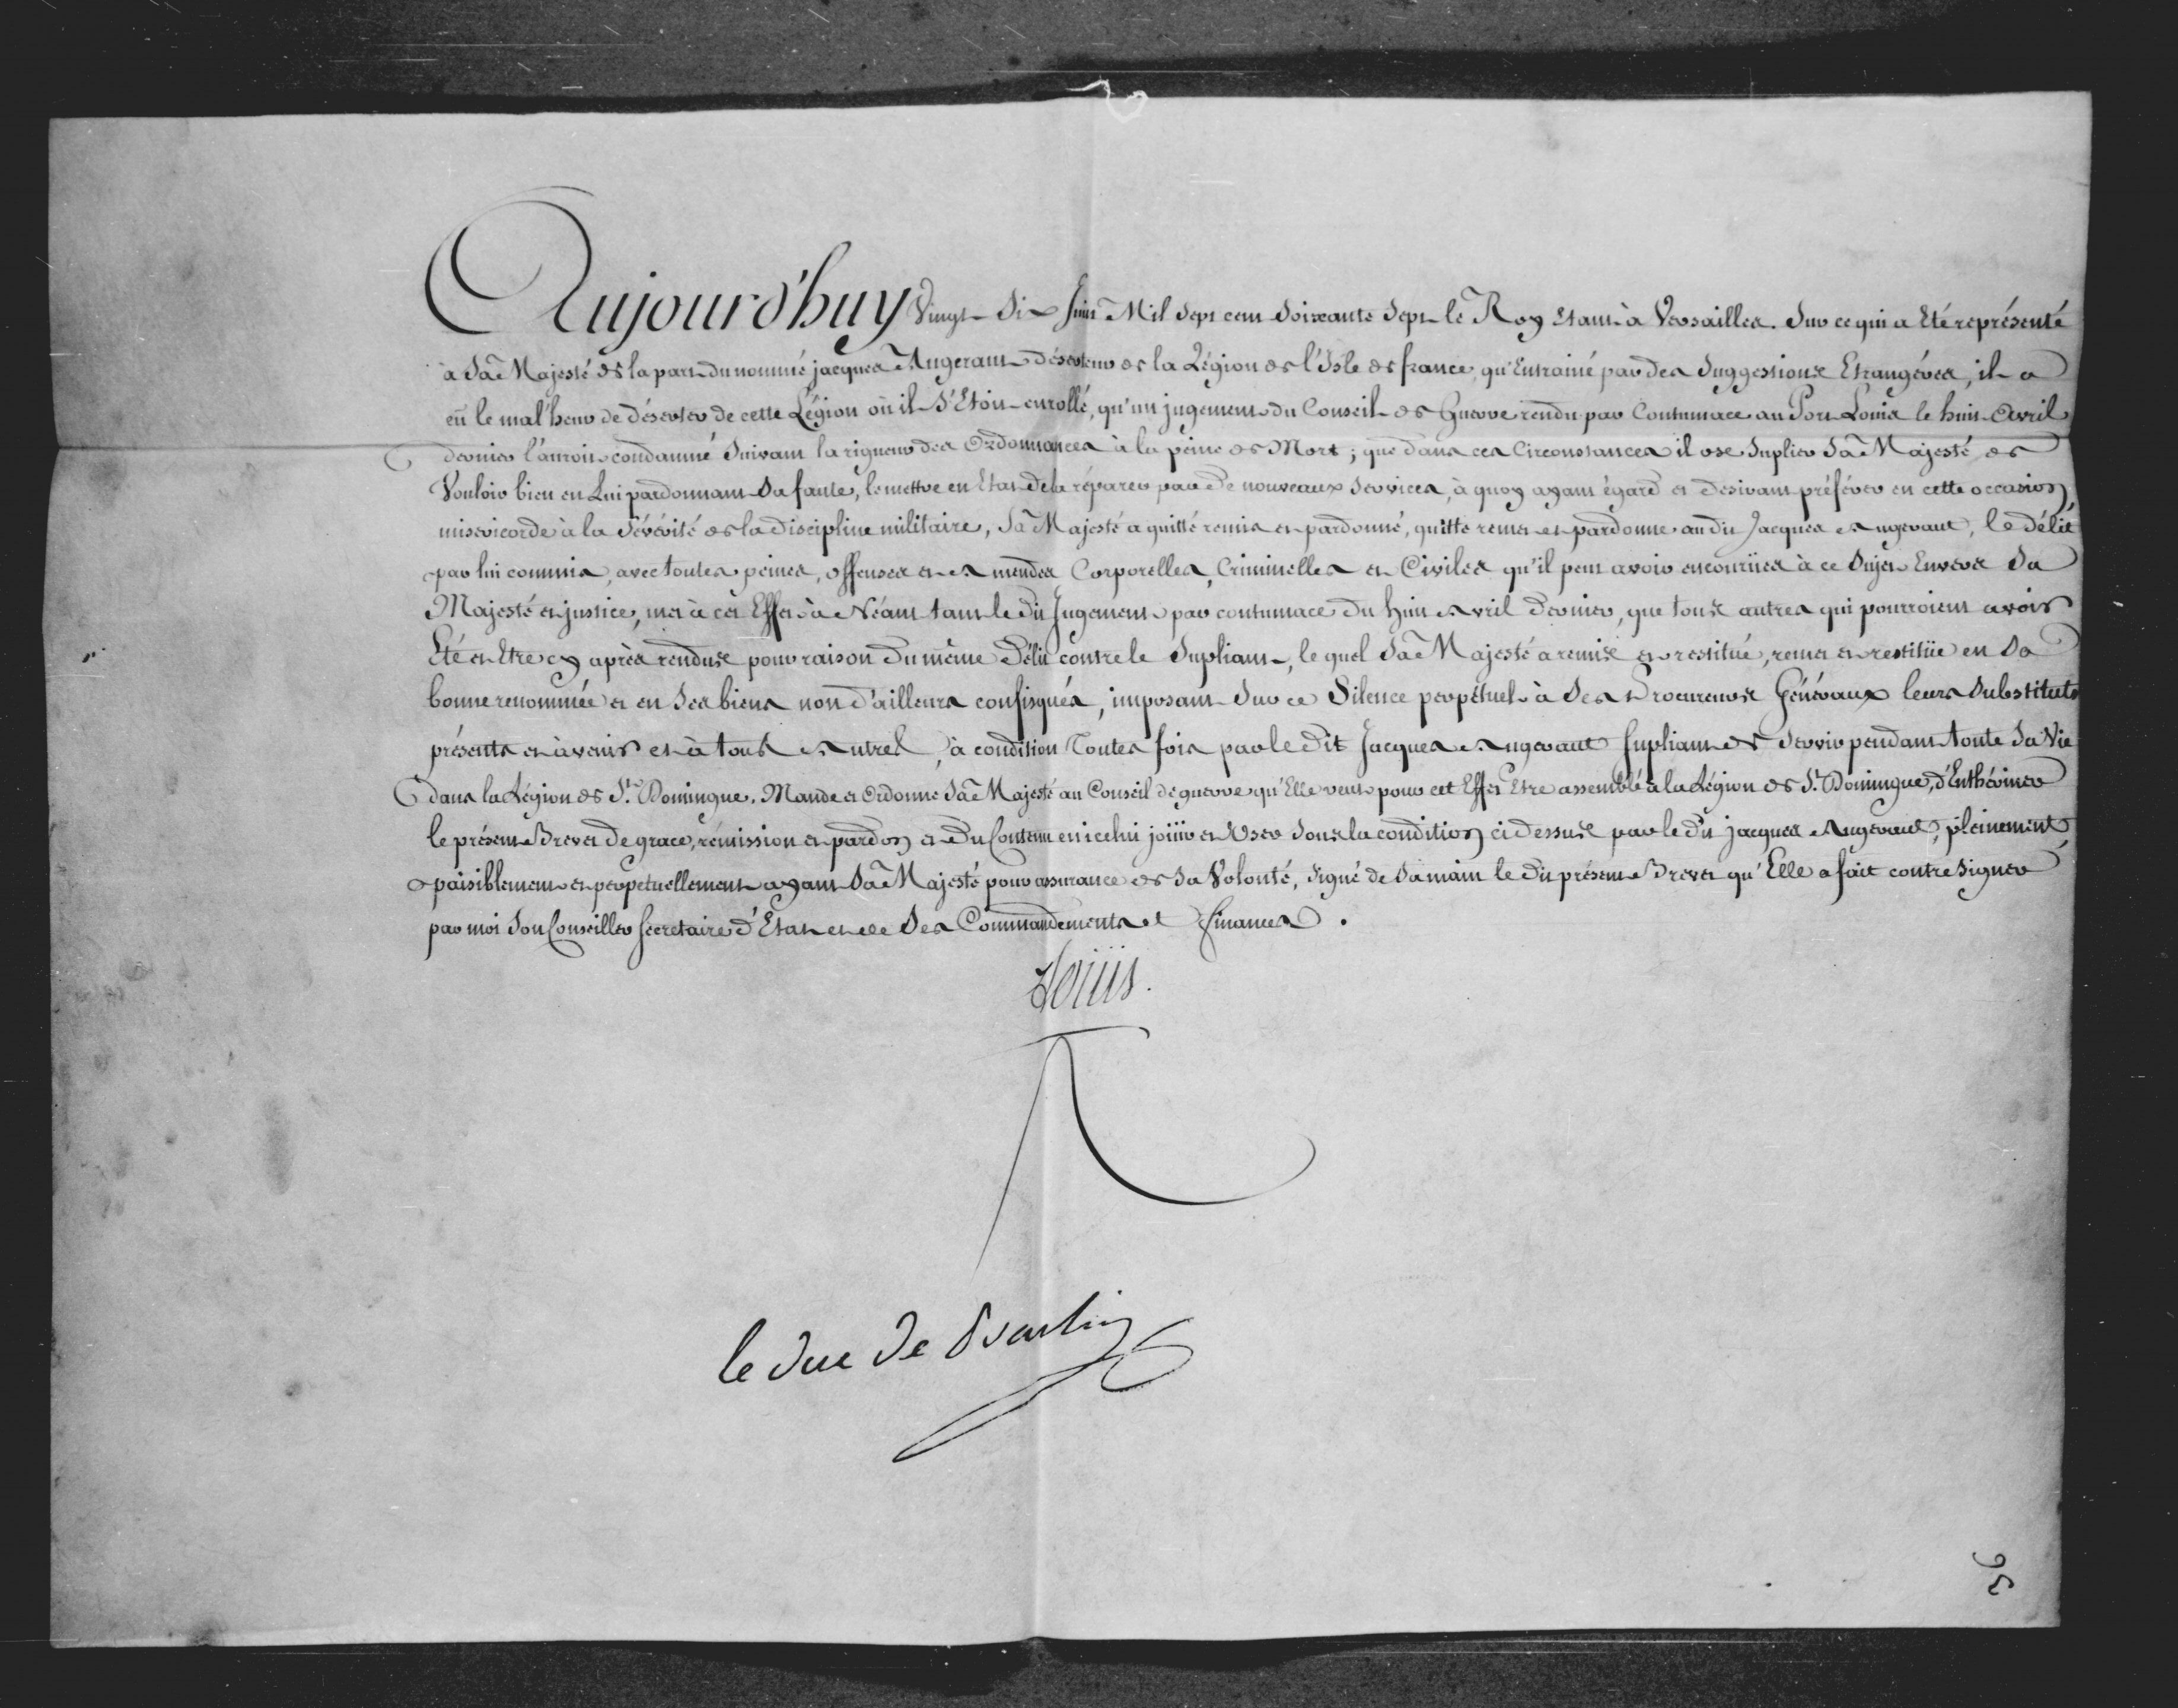 Aujourd'huy Vingt-Six Juin Mil Sept cent Soixante Sept le Roy Etant à Versailles. Sur ce qui a Eté représenté
à Sa Majesté de la part du nommé jacques Angerant déserteur de la Légion de l'Isle de france, qu'Entrainé par des Suggestions Etrangéres, il a
eü le mal'heur de déserter de cette Légion où il S'Etoit enrollé, qu'un jugement du Conseil de Guerre rendu par Contumace au Port Louis le huit Avril
dernier l'auroit condamné Suivant la rigueur des Ordonnances à la peine de Mort ; que dans ces Circonstances il ose Suplier Sa Majesté de
Vouloir bien en Lui pardonnant Sa faute, le mettre en Etat de la réparer par de nouveaux Services, à quoy ayant égard et desirant préférer en cette occasion
misericorde à la Sévérité de la discipline militaire, Sa Majesté a quitté remis et pardonné, quitte remet et pardonne au dit Jacques Angerant, le délit
par lui commis, avec toutes peines, offenses et Amendes Corporelles, Criminelles et Civiles qu'il peut avoir encourües à ce Sujet Envers Sa
Majesté et justice, met à cet Effet à Néant tant le dit Jugement par contumace du huit Avril dernier, que tous autres qui pourroient avoir
Eté et Etre cy après rendus pour raison du même délit contre le Supliant, le quel Sa Majesté a remis et restitué, remet et restitüe en Sa
bonne renommée et en Ses biens non d'ailleurs confisqués, imposant Sur ce Silence perpétuel à Ses Procureurs Généraux leurs Substituts
présents et à venir et à tous Autres, à condition Toutes fois par le dit Jacques Angerant Supliant de Servir pendant toute Sa Vie
dans la Légion de St. Domingue. Mande et Ordonne Sa Majesté au Conseil de guerre qu'Elle veut pour cet Effet Etre assemblé à la Légion de St. Domingue, d'Enthériner
le présent Brevet de grace, rémission et pardon et du Contenu en icelui joüir et User Sous la condition ci dessus par le dit jacques Angerant, pleinement,
paisiblement et perpetuellement ayant Sa Majesté pour assurance de Sa Volonté, Signé de Sa main le dit présent Brevet qu'Elle a fait contre Signer
par moi Son Conseiller Secretaire d'Etat et de Ses Commandements et finances.
Louis.
le duc de Praslin
36